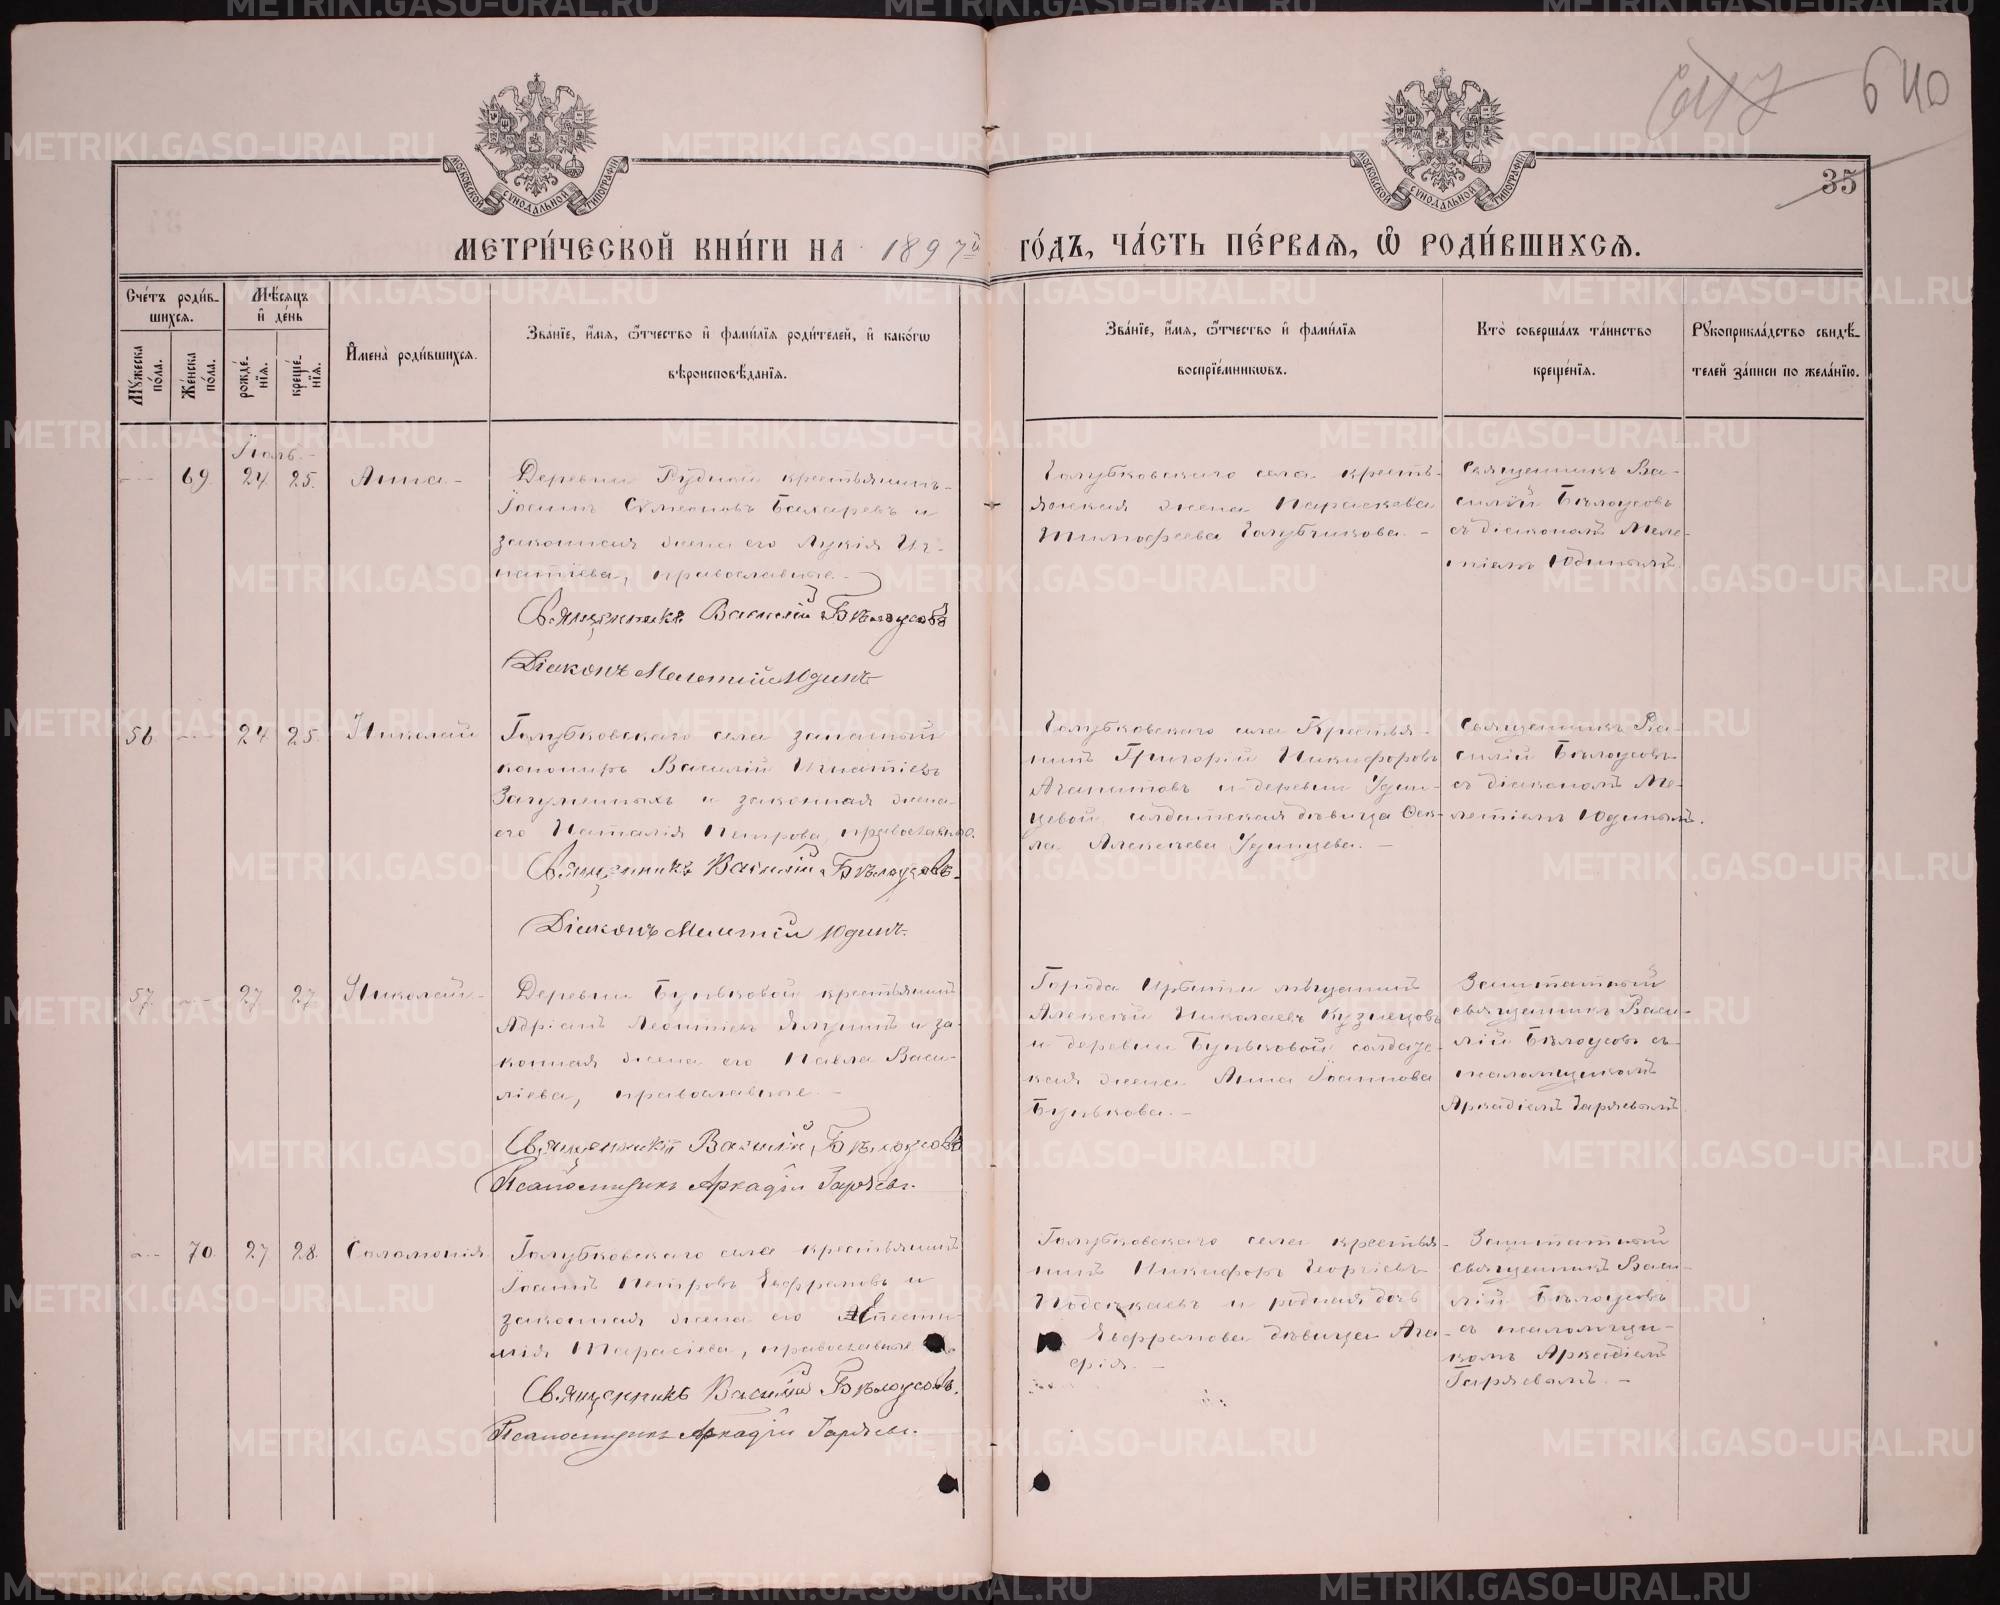 640
35
МОСКОВСКОЙ СѴНОДАЛЬНОЙ ТИПОГРАФІИ
МОСКОВСКОЙ СѴНОДАЛЬНОЙ ТИПОГРАФІИ
МЕТРИ́ЧЕСКОЙ КНИ́ГИ НА 1897й ГО́ДЪ, ЧА́СТЬ ПЕ́РВАѦ, Ѡ҆ РОДИ́ВШИХСѦ.
Сче́тъ роди́в-
шихсѧ.
Мꙋ́жеска по́ла.
Же́нска по́ла.
Мѣ́сѧцъ
и҆ де́нь
рожде́-
нїѧ.
креще́-
нїѧ.
И҆мена̀ роди́вшихсѧ.
Зва́нїе, и҆́мѧ, ѻ҆́тчество и҆ фами́лїѧ роди́телей, и҆ како́гѡ
вѣроисповѣ́данїѧ.
Зва́нїе, и҆́мѧ, ѻ҆́тчество и҆ фами́лїѧ
воспрїе́мникѡвъ.
Кто̀ соверша́лъ та́инство
креще́нїѧ.
Рꙋкоприкла́дство свидѣ́-
телей за́писи по жела́нїю.
Іюль.-
69. 24. 25. Анна.-
Деревни Рудной крестьянинъ
Іоаннъ Сѵмеоновъ Бахаревъ и
законная жена его Лукія Иг-
натіева, православные.-
Священникъ Василій Бѣлоусовъ
Діаконъ Мелетій Юдинъ
Голубковскаго села кресть-
янская жена Параскева
Тимофеева Голубчикова.-
Священникъ Ва-
силій Бѣлоусовъ
съ діакономъ Меле-
тіемъ Юдинымъ.
56. 24. 25. Николай
Голубковскаго села запасный
канониръ Василій Игнатіевъ
Загуменныхъ и законная жена
его Наталія Петрова, православные.
Священникъ Василій Бѣлоусовъ.
Діаконъ Мелетій Юдинъ.
Голубковскаго села Крестья-
нинъ Григорій Никифоровъ
Агапитовъ и деревни Удин-
цевой, солдатская дѣвица Ѳек-
ла Алексѣева Удинцева.-
Священникъ Ва-
силій Бѣлоусовъ
съ діакономъ Ме-
летіемъ Юдинымъ.
57. 27. 27. Николай-
Деревни Буньковой крестьянинъ
Адріанъ Леонтіевъ Ялунинъ и за-
конная жена его Павла Васи-
ліева, православные.-
Священникъ Василій Бѣлоусовъ
Псаломщикъ Аркадій Гаряевъ.
Города Ирбити мѣщанинъ
Алексѣй Николаевъ Кузнецовъ
и деревни Буньковой солдат-
ская жена Анна Іоаннова
Бунькова.-
Заштатный
священникъ Васи-
лій Бѣлоусовъ съ
псаломщикомъ
Аркадіемъ Гаряевымъ.
70. 27. 28. Соломонія
Голубковскаго села крестьянинъ
Іоаннъ Петровъ Евфрановъ и
законная жена его
Тарасіева, православные
Священникъ Василій Бѣлоусовъ.
Псаломщикъ Аркадій Гаряевъ.
Голубковскаго села крестья-
нинъ Никифоръ Георгіевъ
и родная дочь
Евфранова дѣвица Ага-
фія.-
Заштатный
священникъ Васи-
лій Бѣлоусовъ
съ псаломщи-
комъ Аркадіемъ
Гаряевымъ.-
METRIKI.GASO-URAL.RU